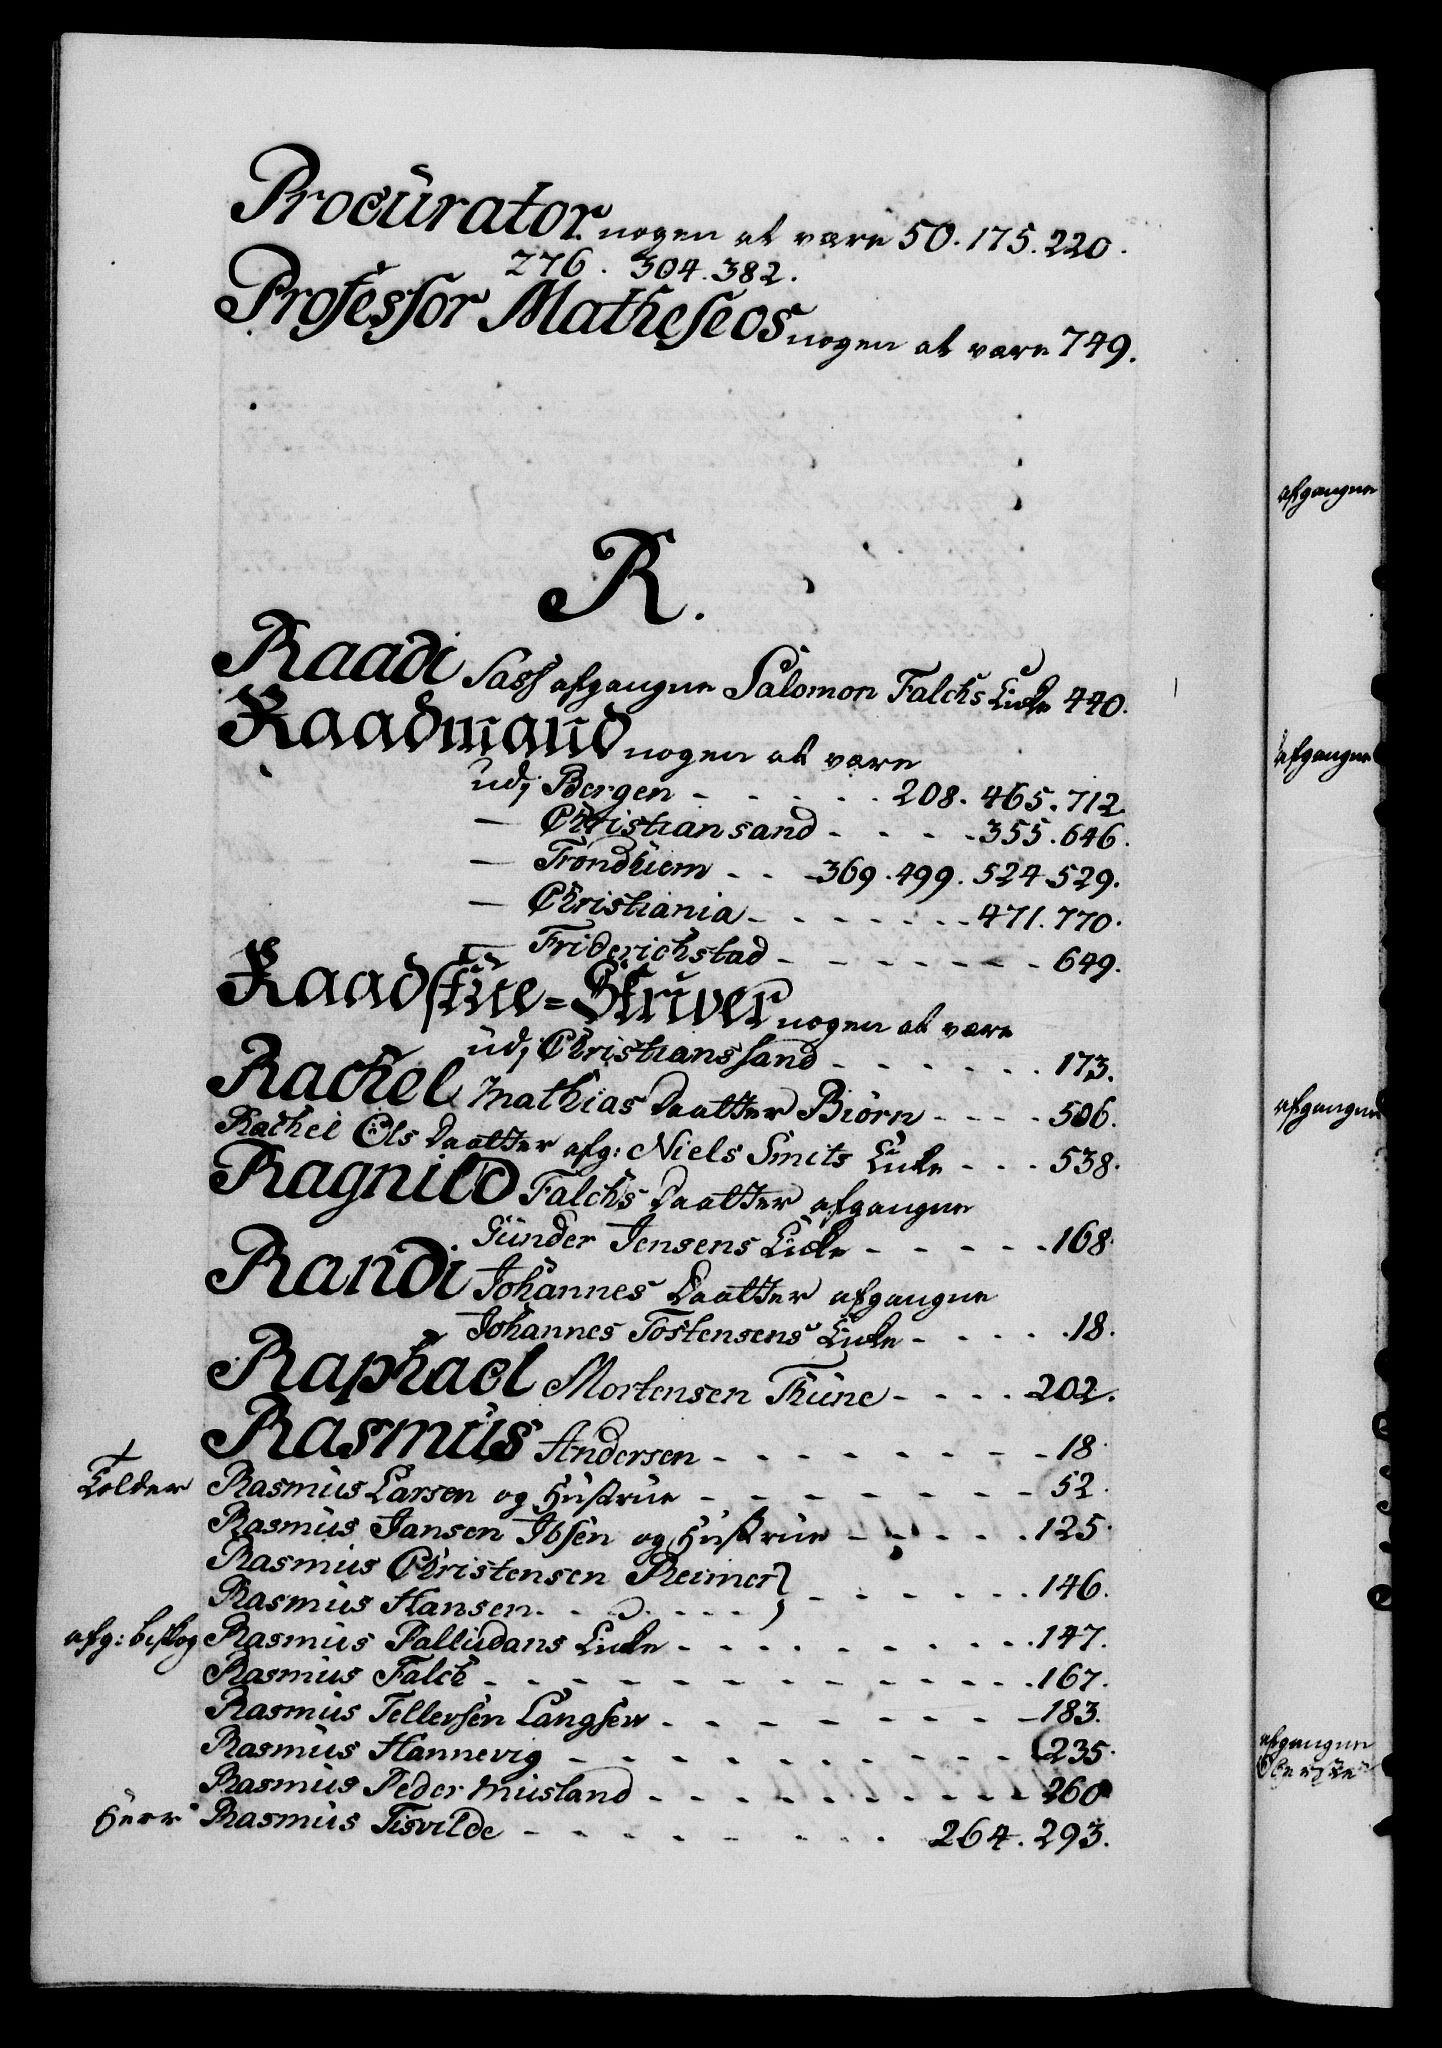 Procurator nogen at være 50. 175. 220.
276. 304. 382.
Professor Matheseos nogen at være 749.
R.
Raadi Sass afgangne Salomon Falchs Enke 440.
Raadmand nogen at være
udj Bergen - - - - - 208. 465. 712
— Christiansand - - - - 355. 646.
— Trondhiem - - - 369. 499. 524. 529.
— Christiania - - - - - - - 471. 770.
— Friderichstad - - - - - - - - 649.
Raadstue=Skriver nogen at være
udj Christianssand - - - - - - 173.
Rachel Mathias Daatter Biörn - - - - 506.
Rachel Ols Daatter afg: Niels Smits Enke - - - 538.
Ragnild Falchs Daatter afgangne
Günder Jensens Enke - - - - - 168.
Randi Johannes Daatter afgangne
Johannes Tostensens Enke - - - - - 18.
Raphael Mortensen Thüne - - - - 202.
Rasmus Andersen - - - - - - - - 18.
Rasmus Larsen og Hustrue - - - - - - - - 52.
Rasmus Jansen Ibsen og Hustrue - - - - - 125.
Rasmus Christensen Reimer }
Rasmus Hansen - - - - - - } - - - - - - 146.
afg: biskop Rasmus Palludans Enke - - - - - - - - - 147.
Rasmus Falch - - - - - - - - - - - - 167.
Rasmus Tellefsen Langsew - - - - - - - - 183.
Rasmus Hannevig - - - - - - - - - - 235.
Rasmus Peder Musland - - - - - - - - - 260
Herr Rasmus Tisvilde - - - - - - - - 264. 293.
afgangne
afgangne
afgangne
afgangne